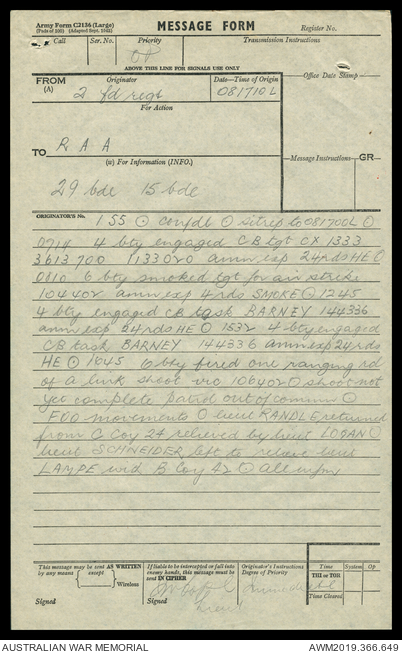 Army Form C2136 (Large)
(Pads of 100) (Adapted Sept. 1942)
MESSAGE FORM
Register No.
Call
Ser. No.
Priority
Transmission Instructions
OP
ABOVE THIS LINE FOR SIGNALS USE ONLY
FROM
(A)
Originator
Date—Time of Origin
Office Date Stamp
2 fd regt
081710L
For Action
TO
RAA
(W) For Information (INFO.)
Message Instructions
GR
29 bde 15 bde
ORIGINATOR'S No.
155 ⊙ confdb ⊙ sitrep to 081700L ⊙
0714 4 bty engaged CB tgt CX 1333
3613 700 113302 ⊙ ammn exp 24 rds HE ⊙
0810 6 bty smoked tgt for air strike
104402 ammn exp 4 rds SMOKE ⊙ 1245
4 bty engaged CB task BARNEY 144336
ammn exp 24 rds HE ⊙ 1532 4 bty engaged
CB task BARNEY 144336 ammn exp 24 rds
HE ⊙ 1645 6 bty fired one ranging rd
of a link shoot vic 106402 ⊙ shoot not
yet complete patrol out of commn ⊙
FOO movements ⊙ lieut RANDLE returned
from C Coy 24 relieved by lieut LOGAN ⊙
lieut SCHNEIDER left to relieve lieut
LAMPE with B Coy 42 ⊙ all infm
This message may be sent AS WRITTEN
by any means
except
Wireless
Signed
If liable to be intercepted or fall into
enemy hands, this message must be
sent IN CIPHER
Signed
Originator's Instructions
Degree of Priority
Immediate
Time
System
Op
THI or TOR
Time Cleared
AUSTRALIAN WAR MEMORIAL
AWM2019.366.649